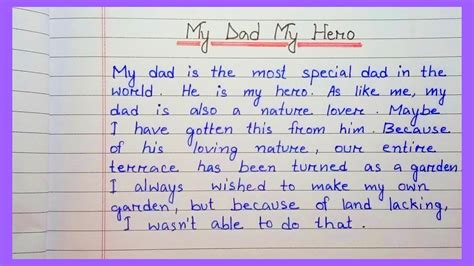 My Dad My Hero
My dad is the most special dad in the
world. He is my hero. As like me, my
dad is also a nature lover. Maybe
I have gotten this from him. Because
of his loving nature, our entire
terrace has been turned as a garden
I always wished to make my own
garden, but because of land lacking,
I wasn't able to do that.